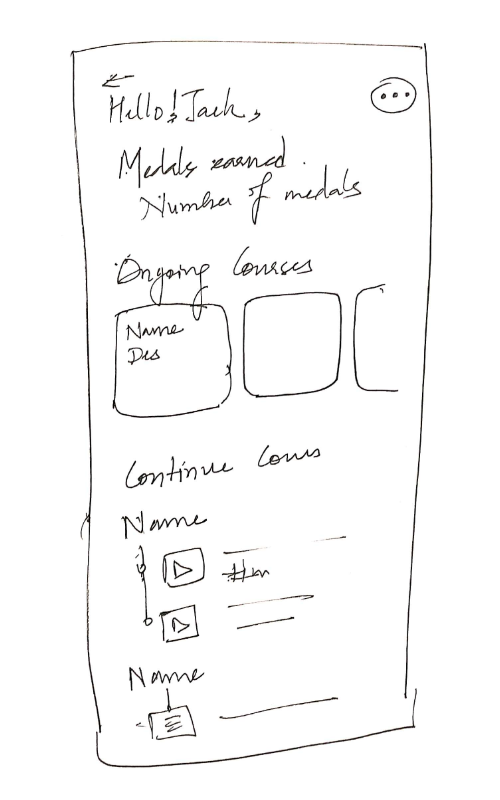 Hello! Jack,
Medals earned.
Number of medals
Ongoing Courses
Name
Des
Continue
Name
Name